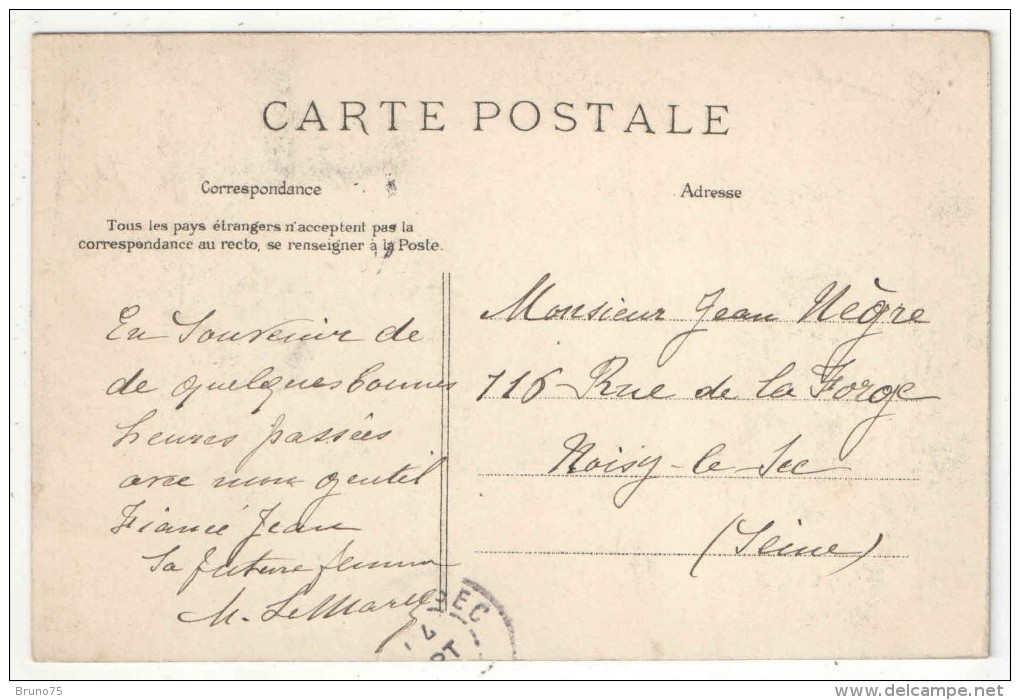 CARTE POSTALE
Correspondance
Tous les pays étrangers n'acceptent pas la
correspondance au recto, se renseigner à la Poste.
En Souvenir de
de quelques bonnes
heures passées
avec mon gentil
Fiancé Jean
Sa future femme
M. LeMarec
Adresse
Monsieur Jean Nègre
116 Rue de la Forge
Noisy-le-Sec
(Seine)
EC
4
Bruno75
delcampe.net